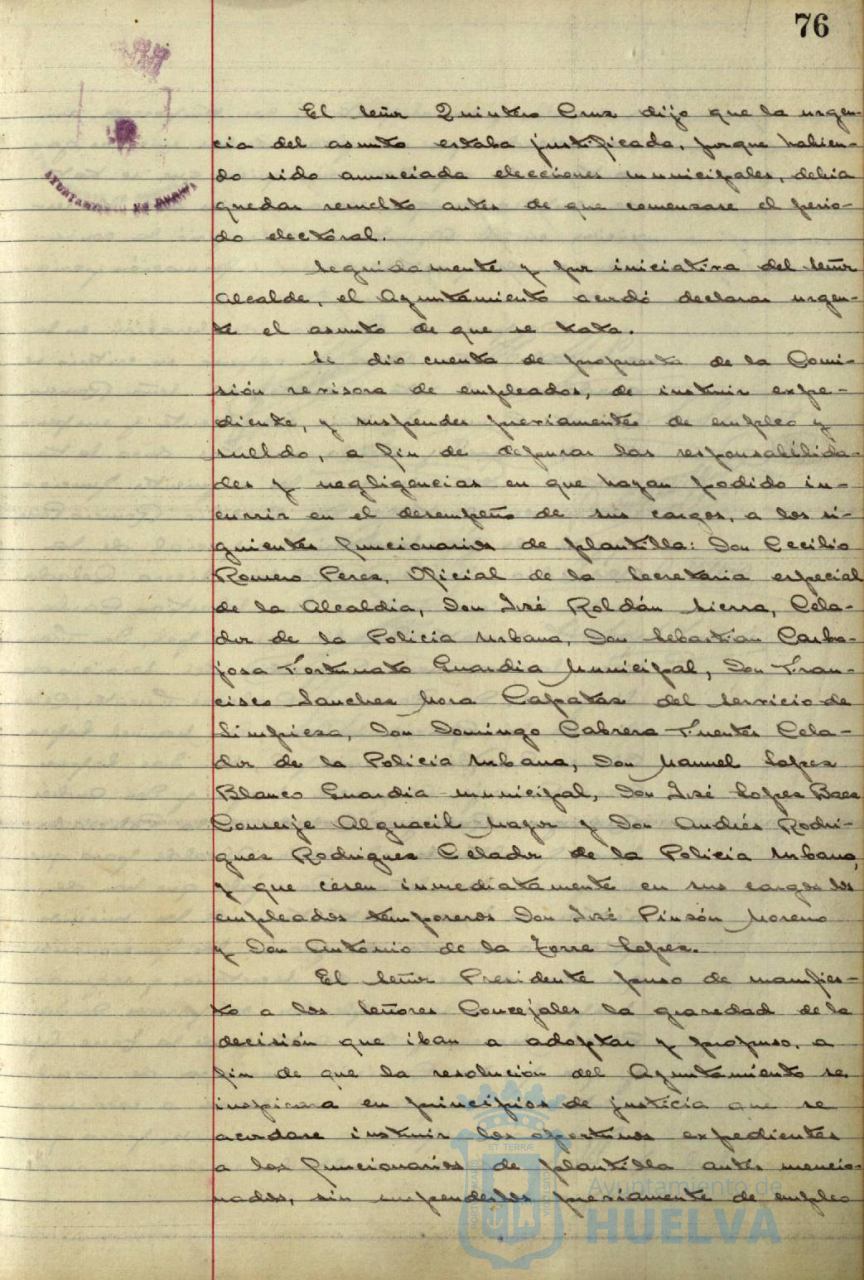 76
AYUNTAMIENTO DE HUELVA
El señor Quintero Cruz dijo que la urgen-
cia del asunto estaba justificada, porque habien-
do sido anunciada elecciones municipales, debia
quedar resuelto antes de que comenzase el perio-
do electoral.
Seguidamente y por iniciativa del señor
Alcalde, el Ayuntamiento acordó declarar urgen-
te el asunto de que se trata.
Se dio cuenta de propuesta de la Comi-
sión revisora de empleados, de instruir expe-
diente, y suspender previamente de empleo y
sueldo, a fin de depurar las responsabilida-
des y negligencias en que hayan podido in-
currir en el desempeño de sus cargos, a los si-
guientes funcionarios de plantilla: Don Cecilio
Romero Perez, Oficial de la Secretaria especial
de la Alcaldia, Don José Roldán Sierra, Cela-
dor de la Policia Urbana, Don Sebastián Carba-
josa Fortunato Guardia Municipal, Don Fran-
cisco Sanchez Mora Capataz del Servicio de
Limpieza, Don Domingo Cabrera Fuentes Cela-
dor de la Policia Urbana, Don Manuel Lopez
Blanco Guardia Municipal, Don José Lopez Baez
Conserje Alguacil Mayor y Don Andrés Rodri-
guez Rodriguez Celador de la Policia Urbana,
y que cesen inmediatamente en sus cargos los
empleados temporeros Don José Pinzón Moreno
y Don António de la Torre Lopez.
El Señor Presidente puso de manifies-
to a los Señores Concejales la gravedad de la
decisión que iban a adoptar y propuso, a
fin de que la resolución del Ayuntamiento se
inspirara en principios de justicia que se
acordase instruir los oportunos expedientes
a los funcionarios de plantilla antes mencio-
nados, sin suspenderlos previamente de empleo
Ayuntamiento de
HUELVA